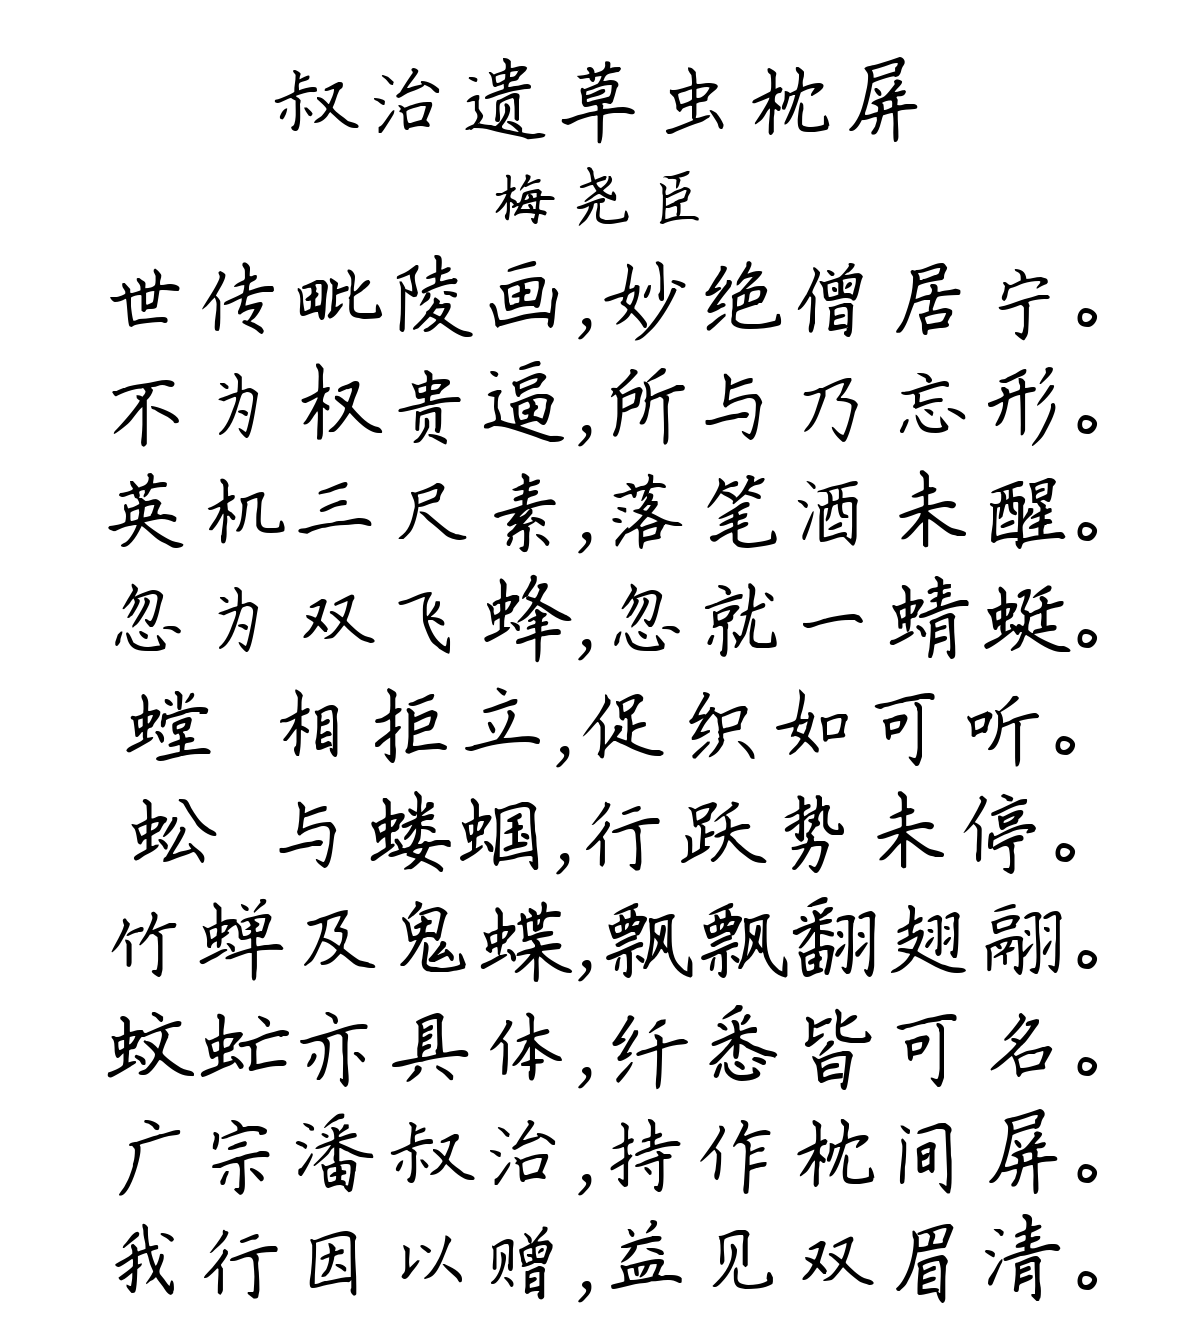 叔治遗草虫枕屏
梅尧臣
世传毗陵画,妙绝僧居宁。
不为权贵逼,所与乃忘形。
英机三尺素,落笔酒未醒。
忽为双飞蜂,忽就一蜻蜓。
螳 相拒立,促织如可听。
蚣 与蝼蝈,行跃势未停。
竹蝉及鬼蝶,飘飘翻翅翮。
蚊虻亦具体,纤悉皆可名。
广宗潘叔治,持作枕间屏。
我行因以赠,益见双眉清。